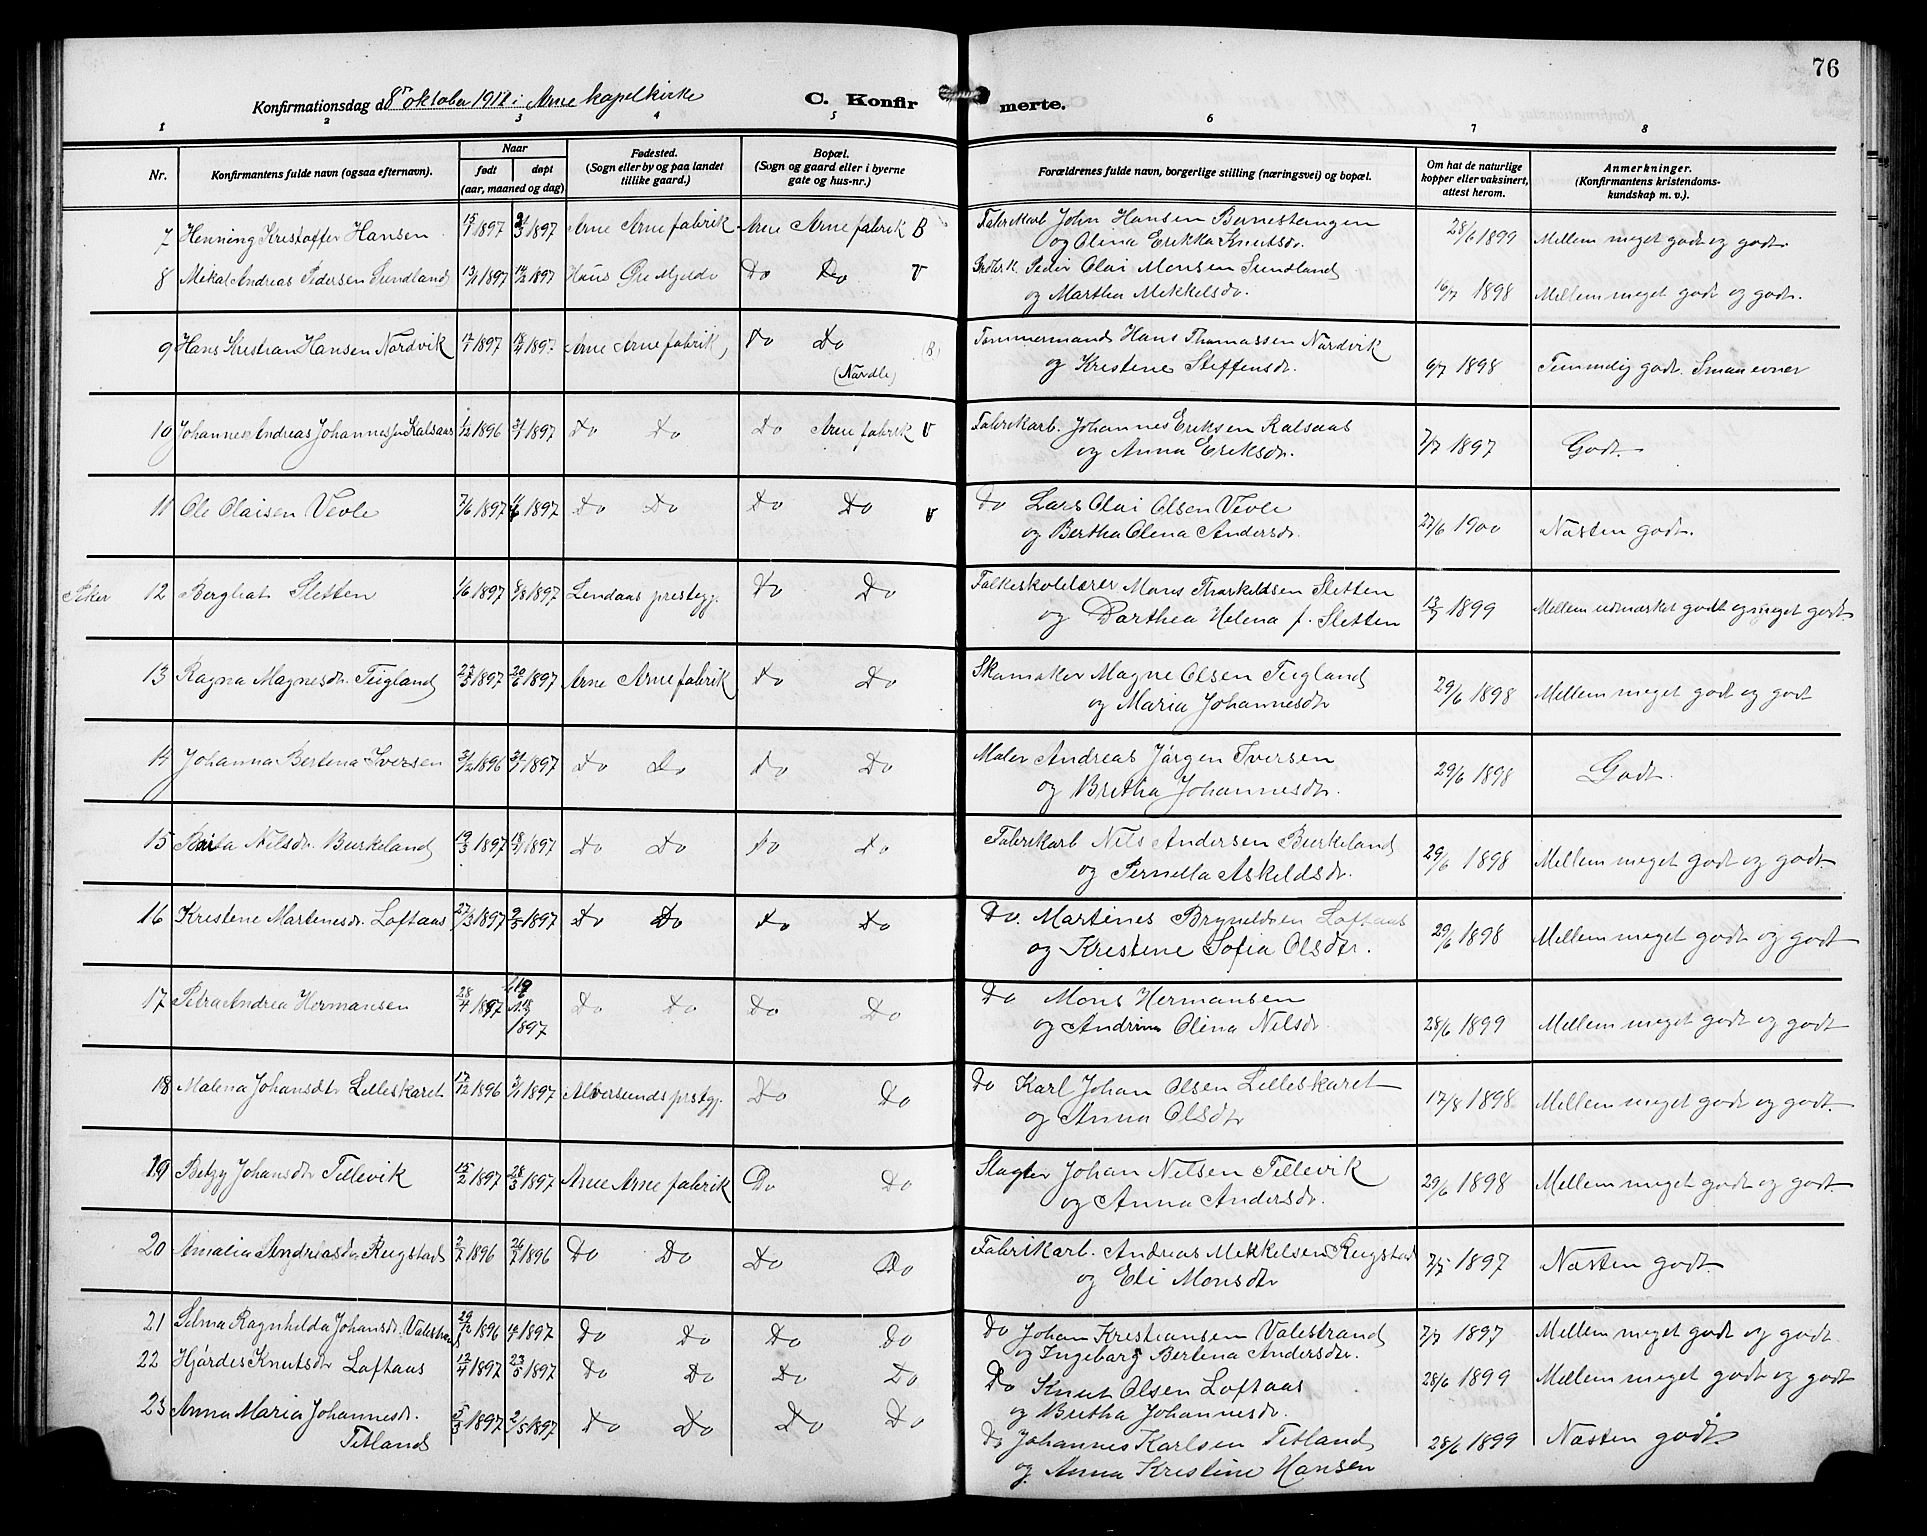 76
Konfirmationsdag d. 8de oktober 1911 i Arne kapelkirke
C. Konfirmerte.
1 2 3 4 5 6 7 8
Nr. Konfirmantens fulde navn (ogsaa efternavn). Naar født døpt (aar, maaned og dag) Fødested. (Sogn eller by og paa landet tillike gaard.) Bopæl. (Sogn og gaard eller i byerne gate og hus-nr.) Forældrenes fulde navn, borgerlige stilling (næringsvei) og bopæl. Om hat de naturlige kopper eller vaksinert, attest herom. Anmerkninger. (Konfirmantens kristendomskundskap m. v.).
7 Henning Kristoffer Hansen 1897 1897 Arne Arne fabrik Arne Arne fabrik B Fabrikarb John Hansen Bernestangen 28/6 1899 Mellem meget godt og godt.
og Olena Erikka Knutsdr.
8 Mikal Andreas Pedersen Sundland 1897 1897 Haus Øre Mjelde Do Do V Peder Olai Monsen Sundland 16/7 1898 Mellem meget godt og godt.
og Martha Mekkelsdr.
9 Hans Kristian Hansen Nordvik 1897 1897 Arne Arne fabrik Do Do (B) Tømmermand Hans Thomassen Nordvik 6/7 1898 Temmelig godt. Smaa evner
(Nordle) og Kristene Steffensdr.
10 Johannes Andreas Johannessen Kalsaas 1/12 1896 3/1 1897 Do Do Do Arne fabrik V Fabrikarb. Johannes Eriksen Kalsaas 7/7 1897 Godt.
og Anna Eriksdr.
11 Ole Olaisen Vevle 7/6 1897 1897 Do Do Do Do V Do Lars Olai Olsen Vevle 27/6 1900 Næsten godt.
og Bertha Olena Andersdr.
12 Borghat Sletten 1/6 1897 8/8 1897 Lindaas prestegj. Do Do Folkeskolelærer Mons Thorkeldsen Sletten 1899 Mellem udmærket godt og meget godt
og Dorthea Helena f. Sletten
13 Ragna Magnesdr. Tugland 23/3 1897 20/6 1897 Arne Arne fabrik Do Do Skomaker Magne Olsen Tugland 29/6 1898 Mellem meget godt og godt
og Maria Johannesdr
14 Johanna Bertina Iversen 3/12 1896 31/1 1897 Do Do Do Do Maler Andreas Jörgen Iversen 29/6 1898 Godt.
og Bretha Johannesdr.
15 Brita Nilsdr. Burkeland 19/3 1897 1897 Do Do Do Do Fabrikarb Nels Andersen Burkeland 29/6 1898 Mellem meget godt og godt
og Pernella Askeldsdr.
16 Kristene Martenesdr. Loftaas 27/3 1897 9/5 1897 Do Do Do Do Do. Martines Bryneldsen Loftaas 29/6 1898 Mellem meget godt og godt
og Kristene Sofia Olsdtr.
17 Petra Andrea Hermansen 28/4 1897 1897 Do Do Do Do Do Mons Hermansen 28/6 1899 Mellem meget godt og godt
og Andrina Olina Nilsdr.
18 Malena Johansdtr Lilleskaret 17/12 1896 3/1 1897 Alversunds prstgj. Do Do Do Karl Johan Olsen Lilleskaret 17/8 1898 Mellem meget godt og godt.
og Anna Olsdtr
19 Betzy Johansdtr Tellevik 15/2 1897 28/3 1897 Arne Arne fabrik Do Do Slagter Johan Nilsen Tellevik 29/6 1898 Mellem meget godt og godt.
og Anna Andersdr.
20 Amalia Andreasdr. Rugstad 2/7 1896 26/7 1896 Do Do Do Do Fabrikarb. Andreas Mekkelsen Rugstad 1897 Næsten godt.
og Eli Monsdtr
21 Selma Ragnhilda Johansdr. Valestrand 29/12 1896 1897 Do Do Do Do Do Johan Kristiansen Valestrand 7/7 1897 Mellem meget godt og godt
og Ingeborg Bertina Andersdtr.
22 Hjördes Knutsdtr Loftaas 12/4 1897 23/5 1897 Do Do Do Do Do Knut Olsen Loftaas 28/6 1899 Mellem meget godt og godt
og Bretha Johannesdr.
23 Anna Maria Johannesdr. 5/3 1897 2/5 1897 Do Do Do Do Do Johannes Karlsen Titland 28/6 1899 Næsten godt.
Titland og Anna Kristine Hansen